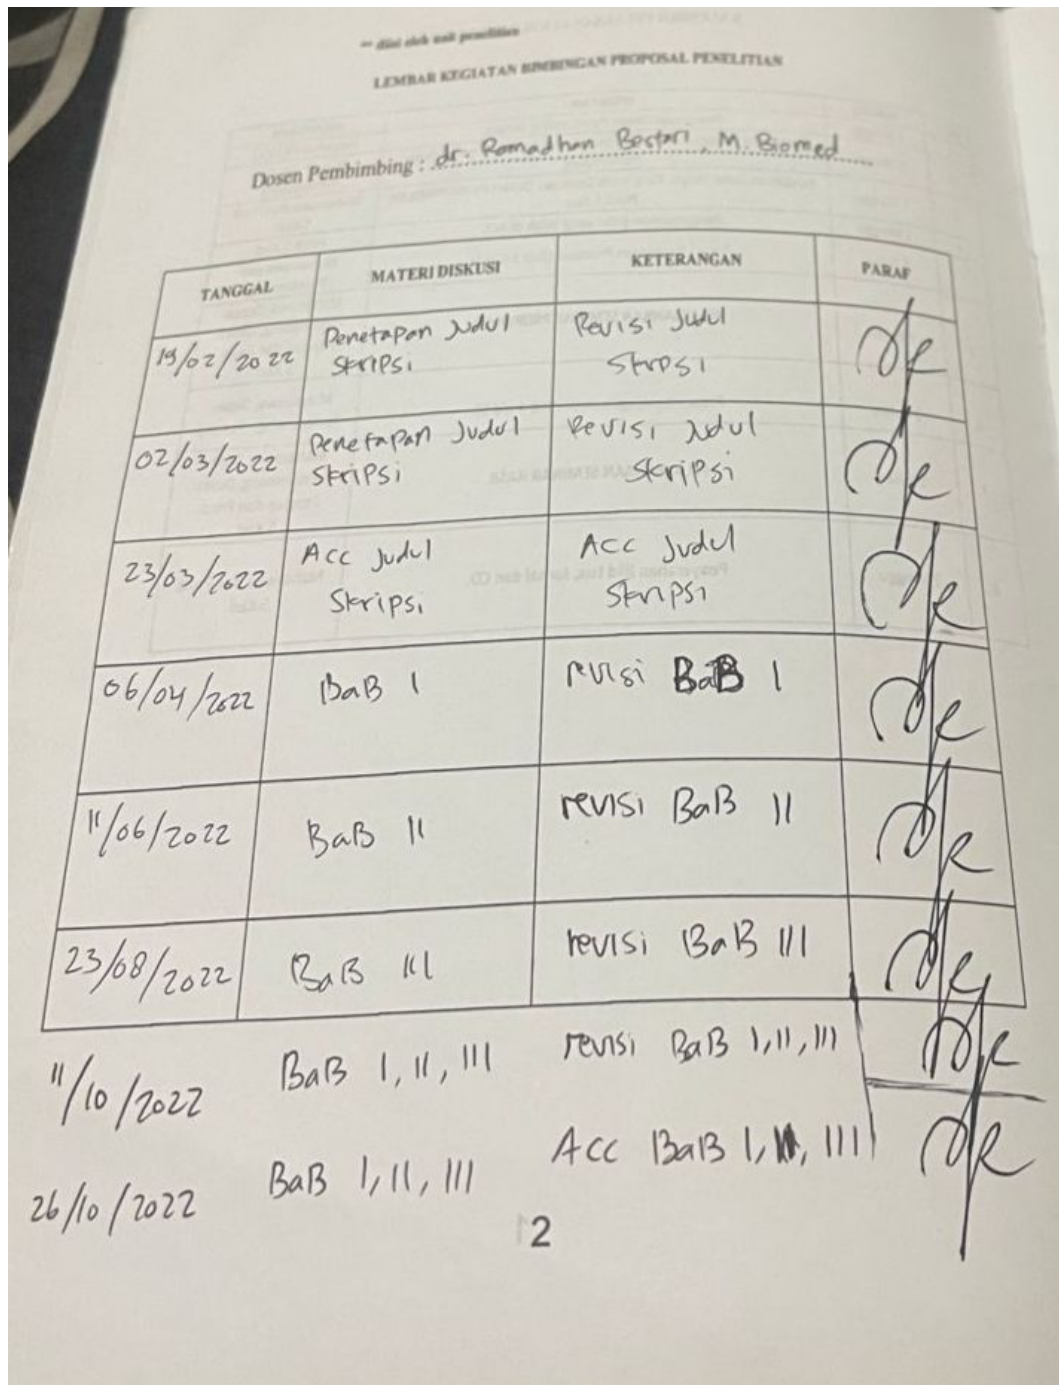 ** diisi oleh unit penelitian
LEMBAR KEGIATAN BIMBINGAN PROPOSAL PENELITIAN
Dosen Pembimbing : dr. Ramadhan Bestari, M. Biomed
TANGGAL MATERI DISKUSI KETERANGAN PARAF
19/02/2022 Penetapan Judul Revisi Judul
Skripsi Skripsi
02/03/2022 Penetapan Judul Revisi Judul
Skripsi Skripsi
23/03/2022 Acc Judul Acc Judul
Skripsi Skripsi
06/04/2022 BaB I revisi BaB I
11/06/2022 BaB II revisi BaB II
23/08/2022 BaB III revisi BaB III
11/10/2022 BaB I, II, III revisi BaB I, II, III
26/10/2022 BaB I, II, III Acc BaB I, II, III
2